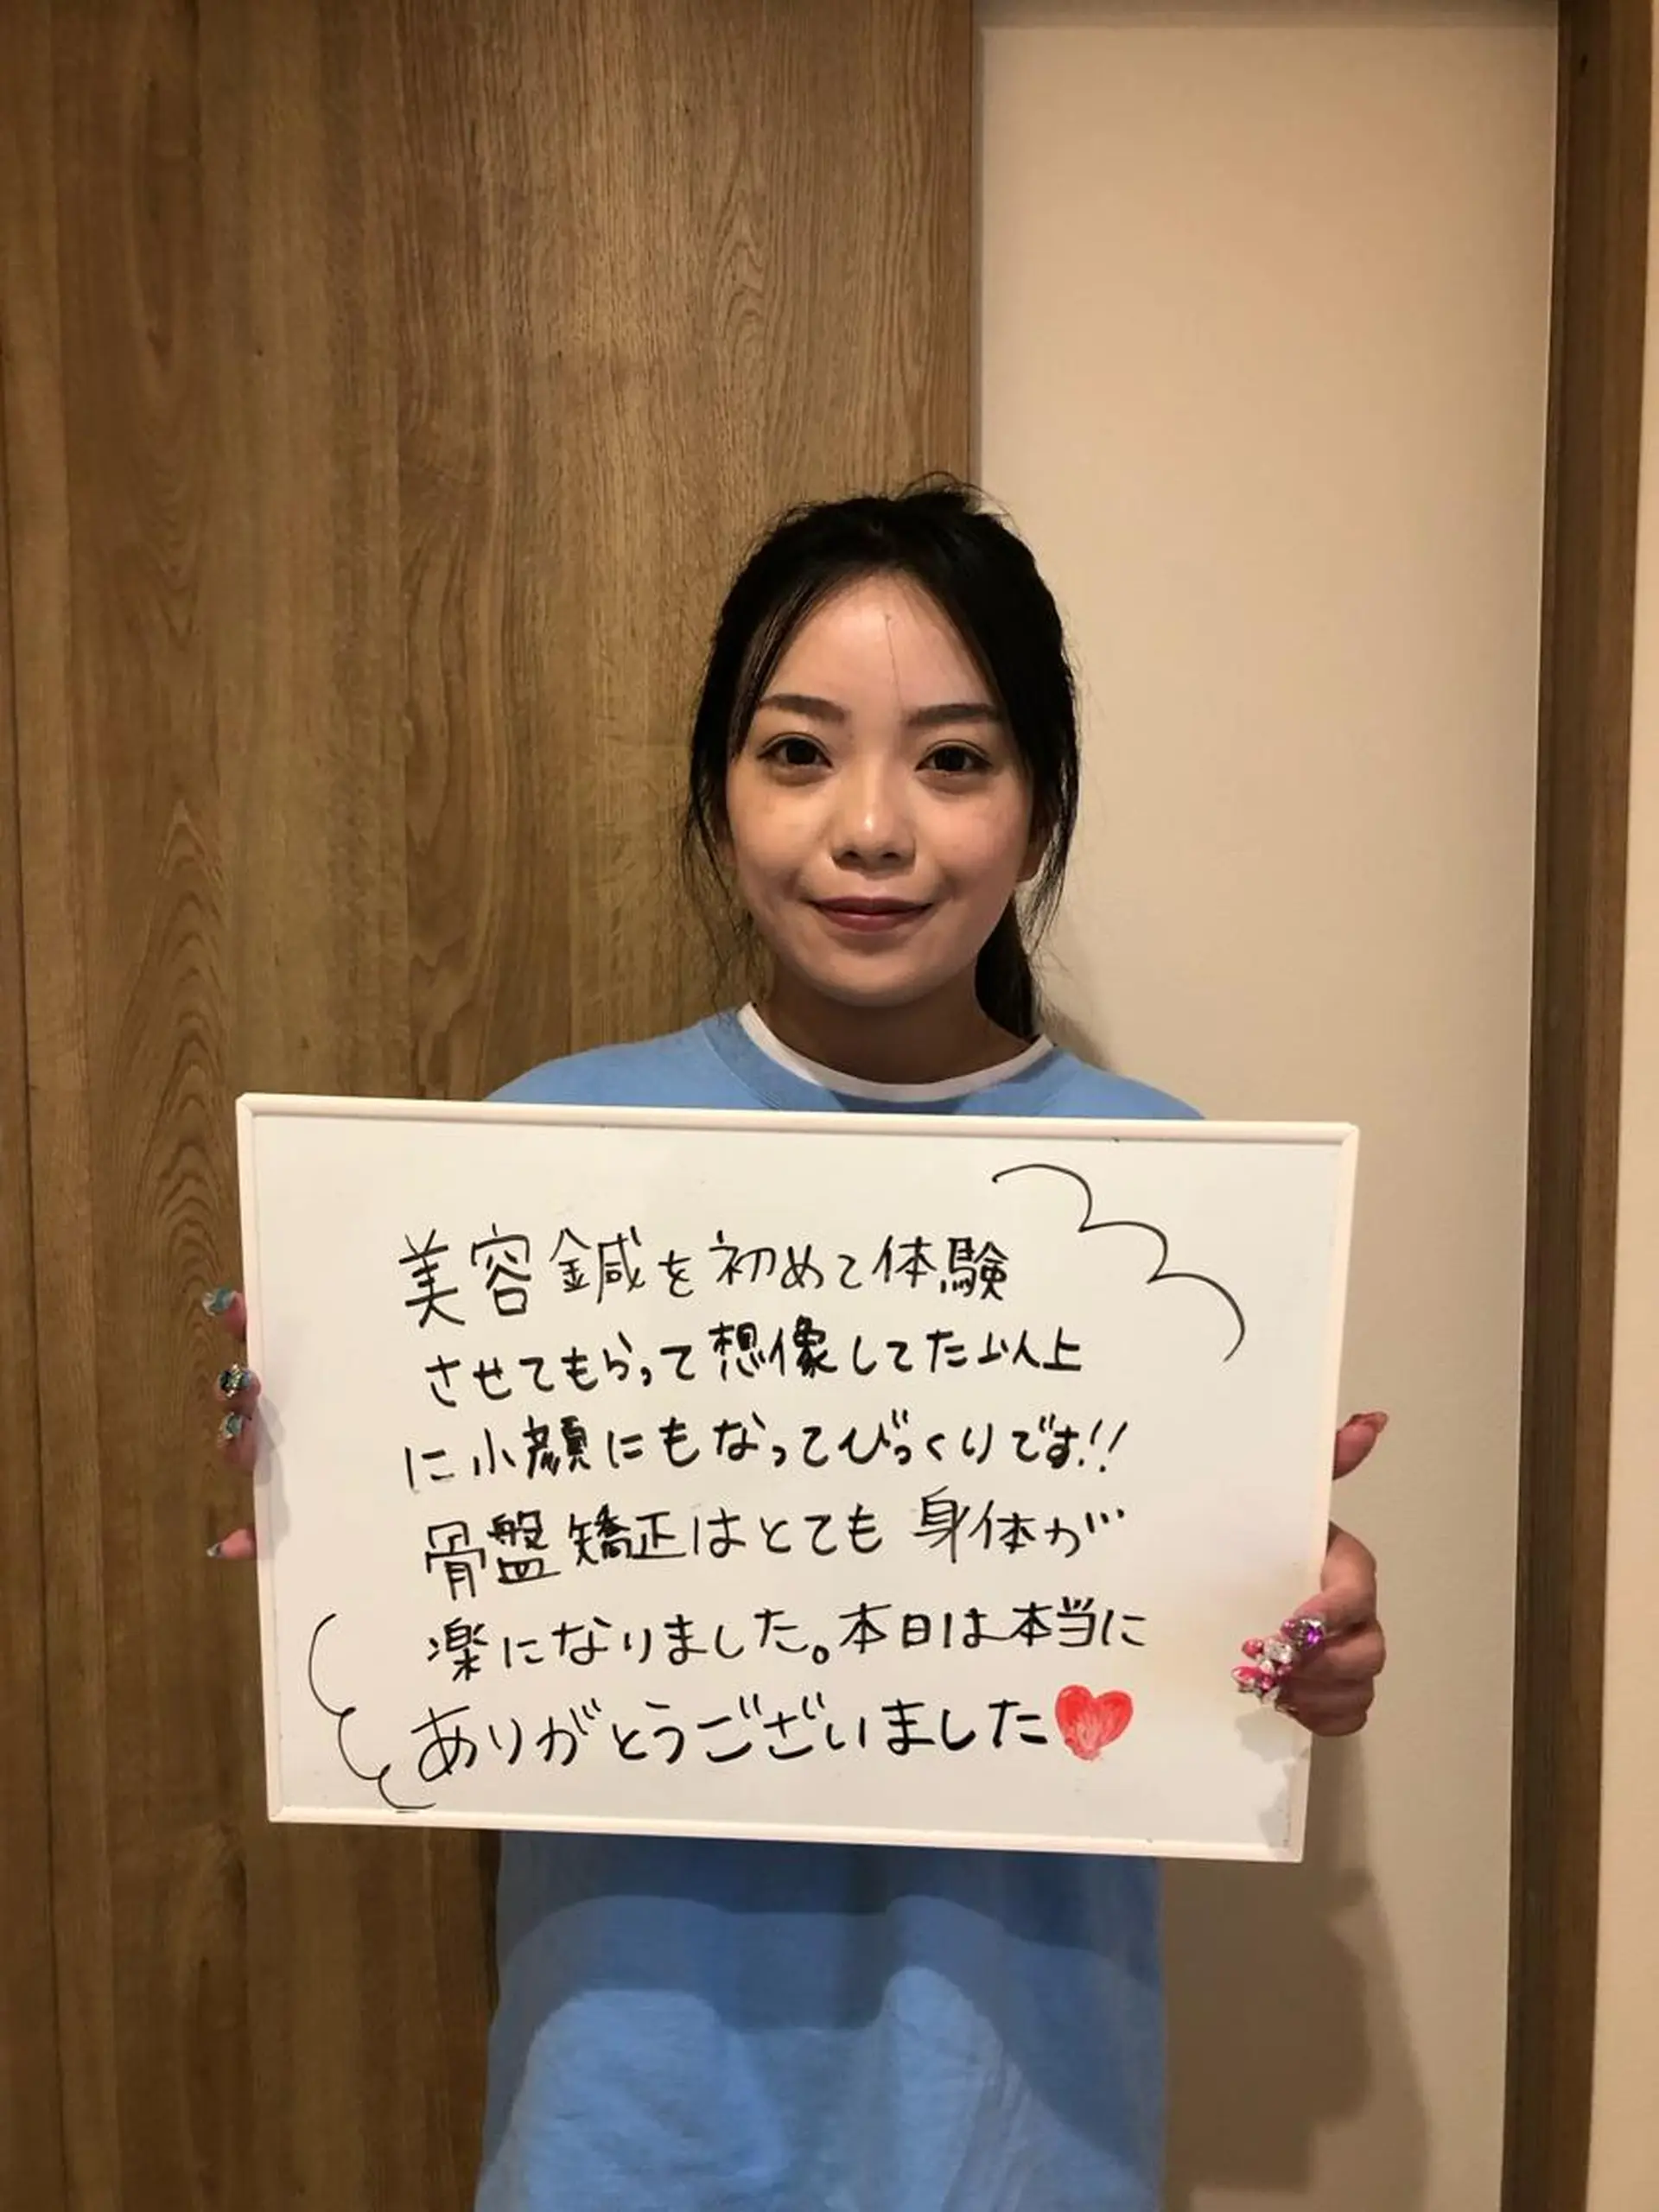 美容鍼を初めて体験
させてもらって想像してた以上
に小顔にもなってびっくりです!!
骨盤矯正はとても身体が
楽になりました。本日は本当に
ありがとうございました